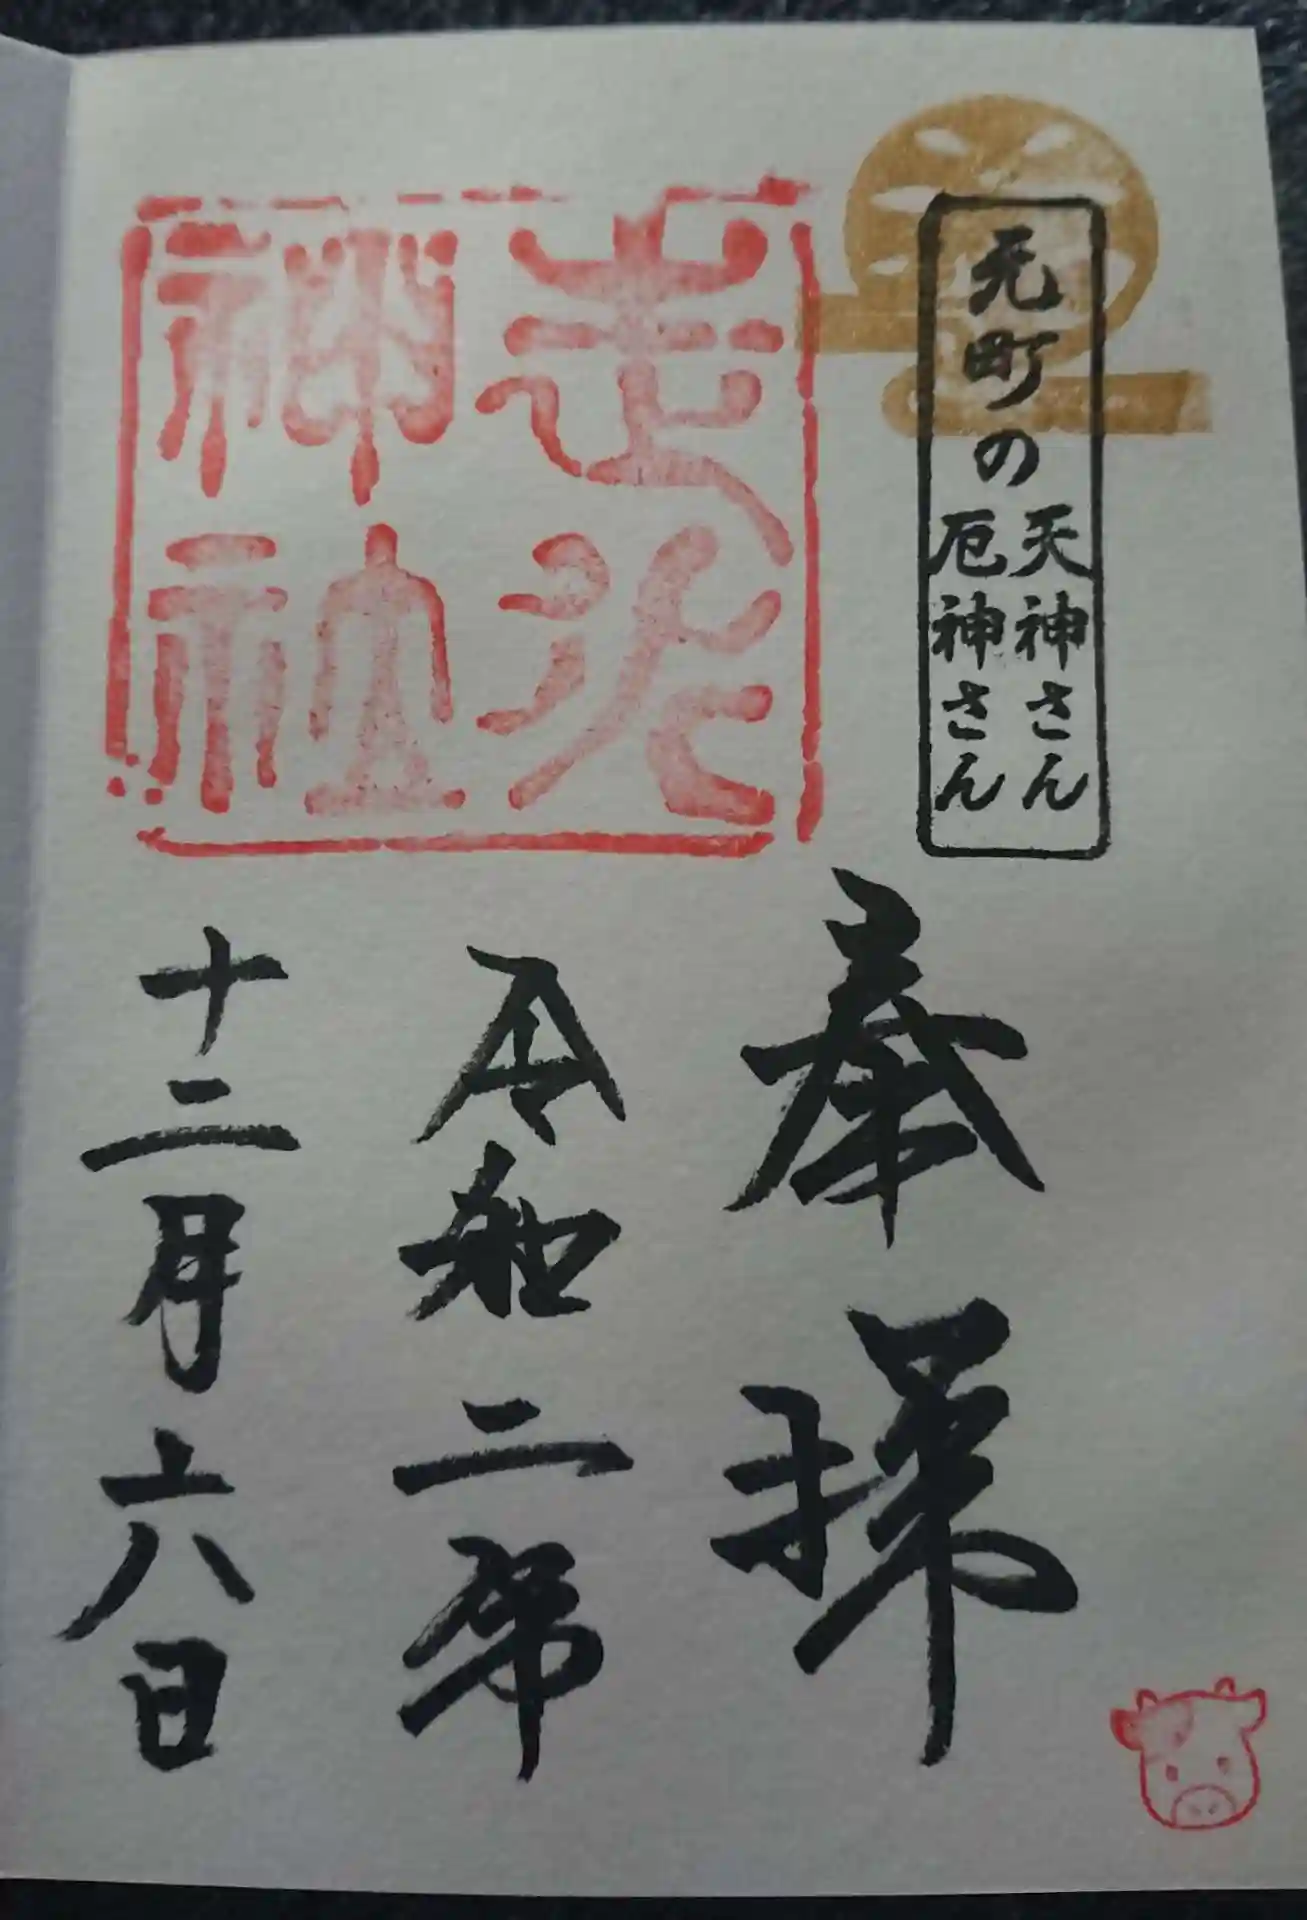 元町の
天神さん
厄神さん
奉拝
走水
神社
令和二年
十二月六日